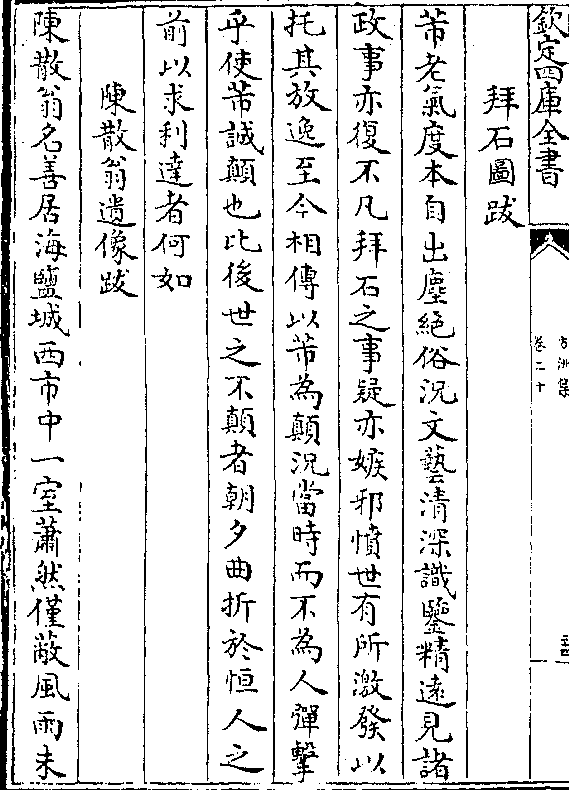 欽定四庫全書
卷二十
拜石圖跋
芾老氣度本自出塵絕俗況文藝清深識鑒精遠見諸
政事亦復不凡拜石之事疑亦嫉邪憤世有所激發以
托其放逸至今相傳以芾為顛況當時而不為人彈擊
乎使芾誠顛也比後世之不顛者朝夕曲折於恒人之
前以求利達者何如
陳散翁遺像跋
陳散翁名善居海鹽城西市中一室蕭然僅蔽風雨未